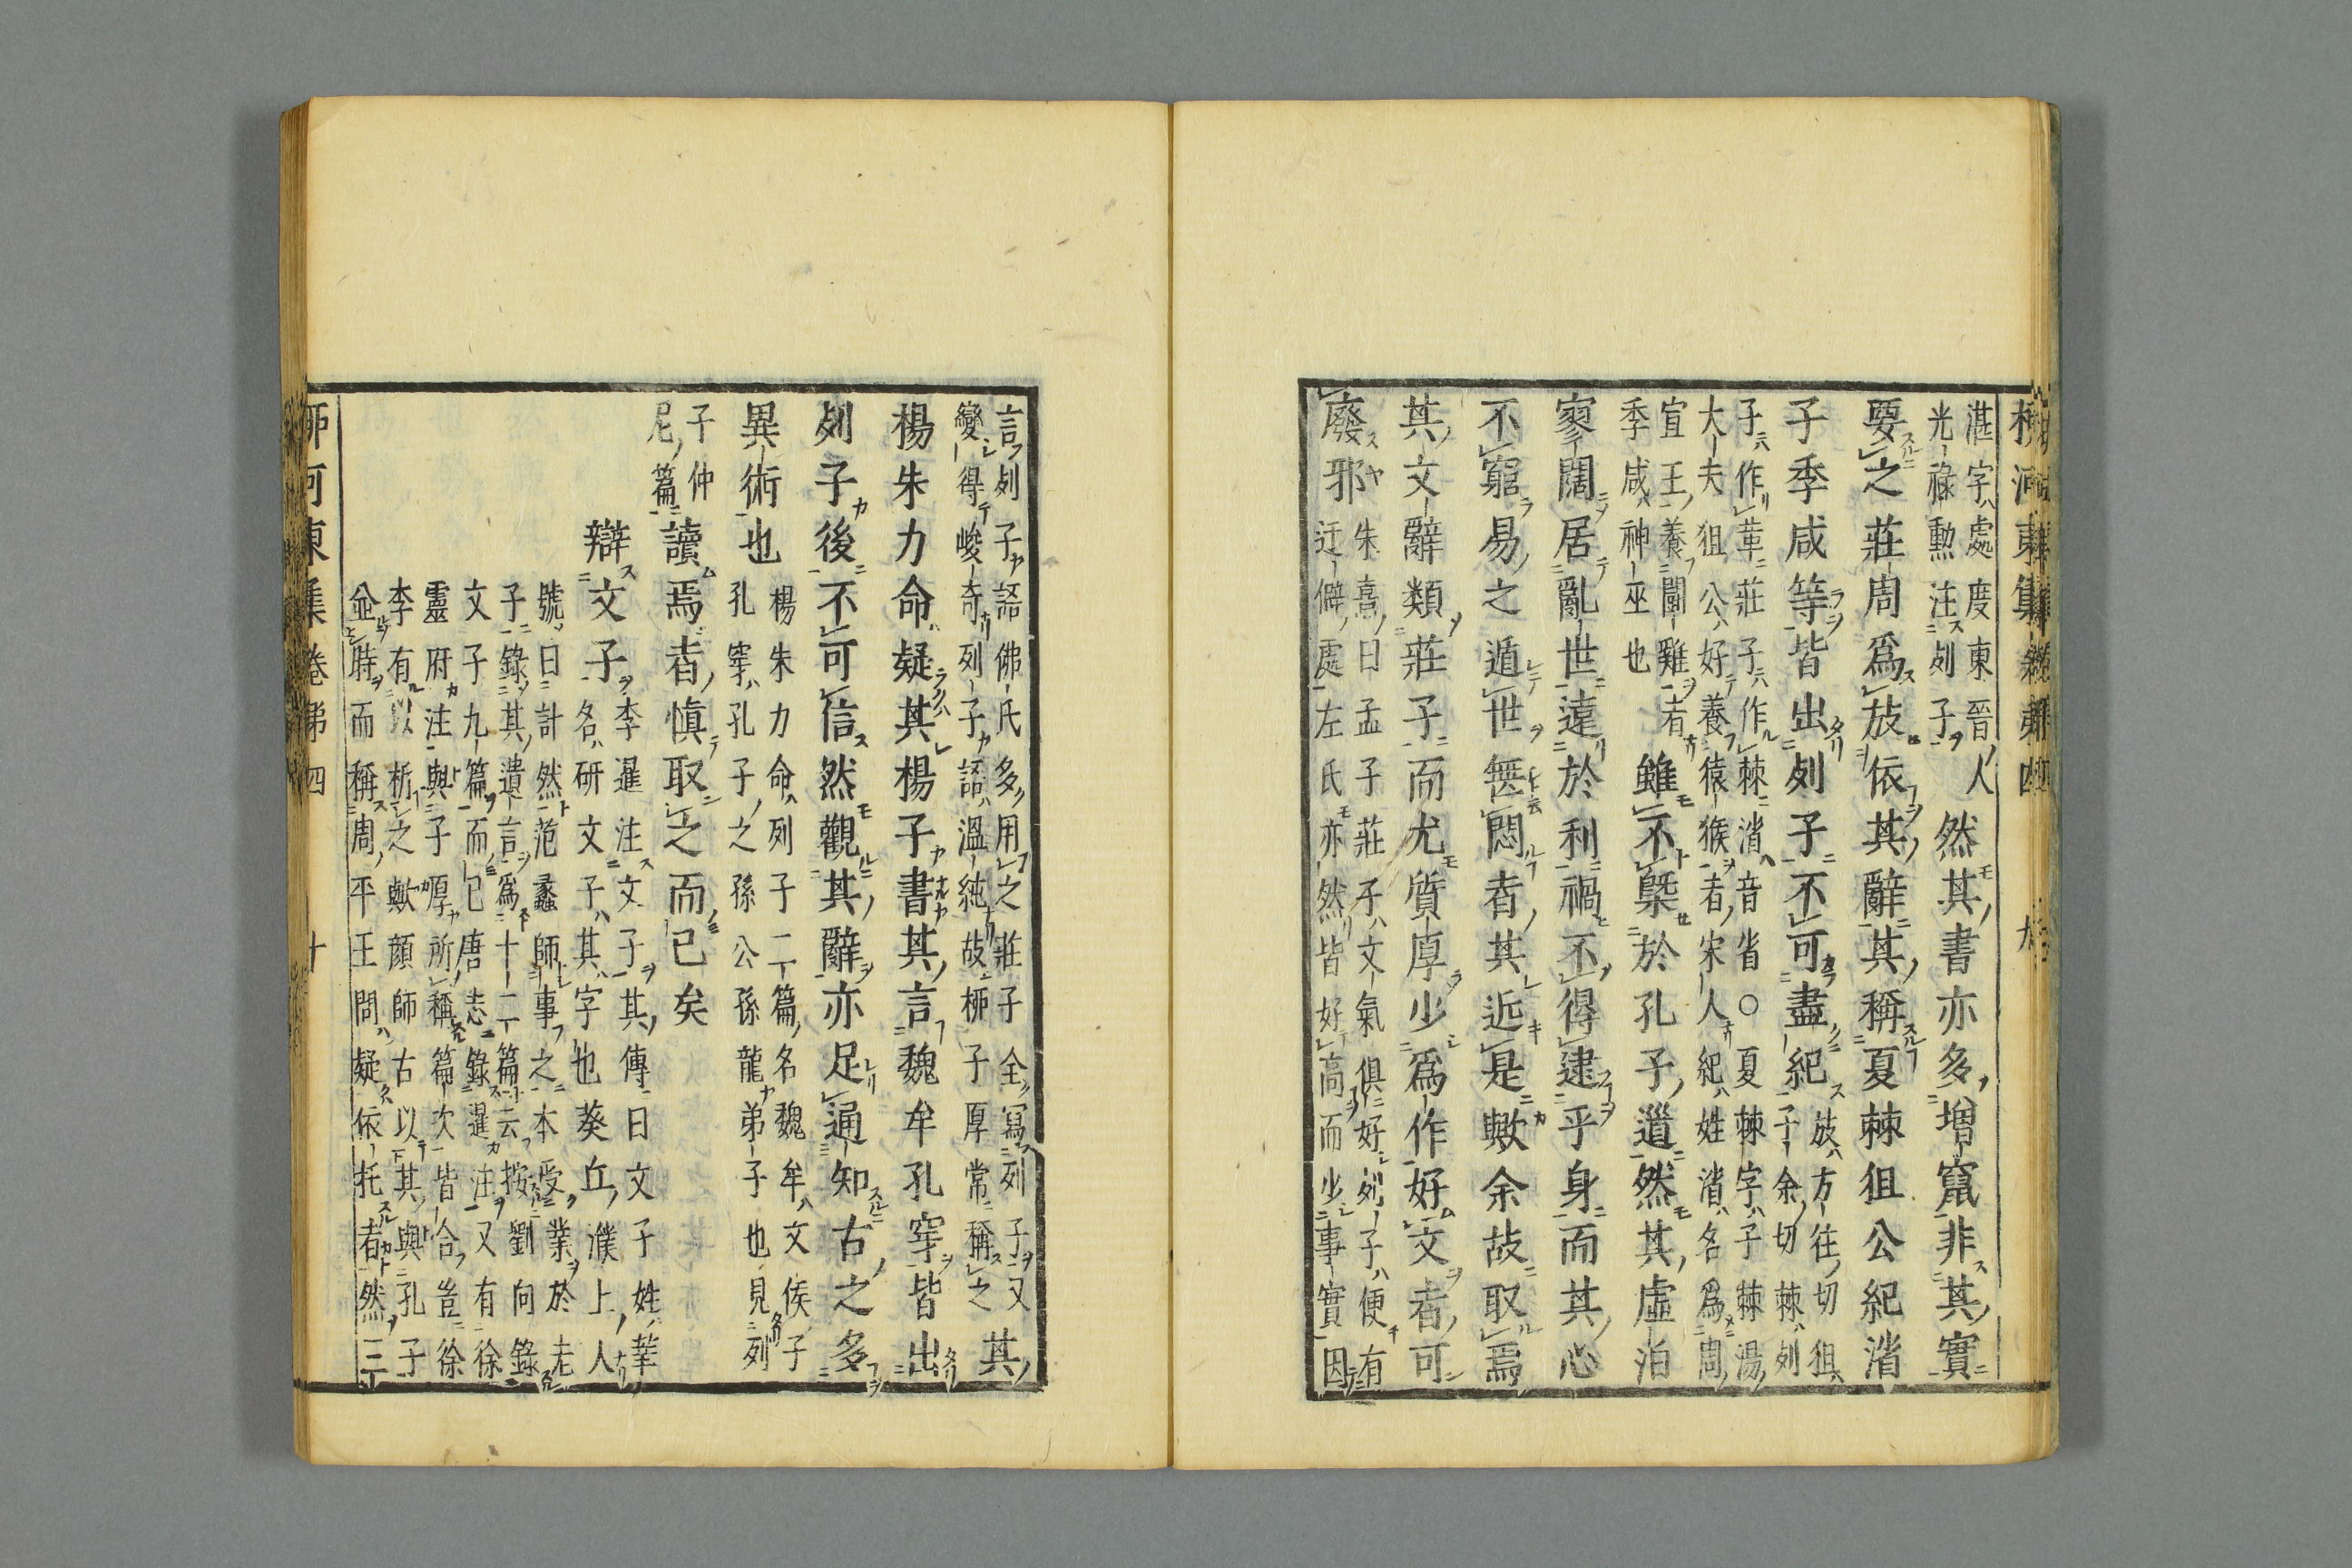 柳河東集卷第四 九
湛字處度東晉人
光祿勲注列子
然其書亦多增竄非其實
要之莊周爲放依其辭其稱夏棘狙公紀渻
子季咸等皆出列子不可盡紀
放方往切狙
子余切棘列
子六作革莊子六作棘渻音省○夏棘字子棘湯
大夫狙公好養猿猴者宋人紀姓渻名爲周
宣王養鬭雞者
季咸神巫也
雖不槩於孔子道然其虛泊
寥闊居亂世遠於利禍不得逮乎身而其心
不窮易之遁世無悶者其近是歟余故取焉
其文辭類莊子而尤質厚少爲作好文者可
廢邪
朱熹曰孟子莊子文氣俱好列子便有
迂僻處左氏亦然皆好高而少事實因
言列子語佛氏多用之莊子全寫列子又
變得峻奇列子語溫純故柳子厚常稱之
其
楊朱力命疑其楊子書其言魏牟孔穿皆出
列子後不可信然觀其辭亦足通知古之多
異術也
楊朱力命列子二篇名魏牟文侯子
孔穿孔子之孫公孫龍弟子也見列
子仲
尼篇
讀焉者愼取之而已矣
辯文子
李暹注文子其傳曰文子姓莘
名研文子其字也葵丘濮上人
號曰計然范蠡師事之本受業於老
子錄其遺言爲十二篇云按劉向錄
文子九篇而已唐志錄暹注又有徐
靈府注與子厚所稱篇次皆合豈徐
李有以析之歟顏師古以其與孔子
並時而稱周平王問疑依托者然三
柳河東集卷第四 十